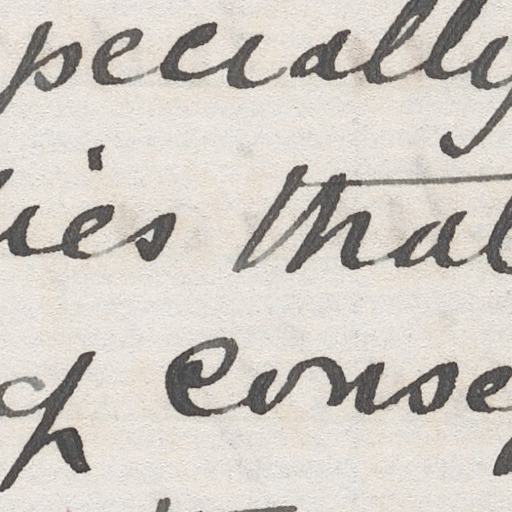 pecially
ies that
of conse